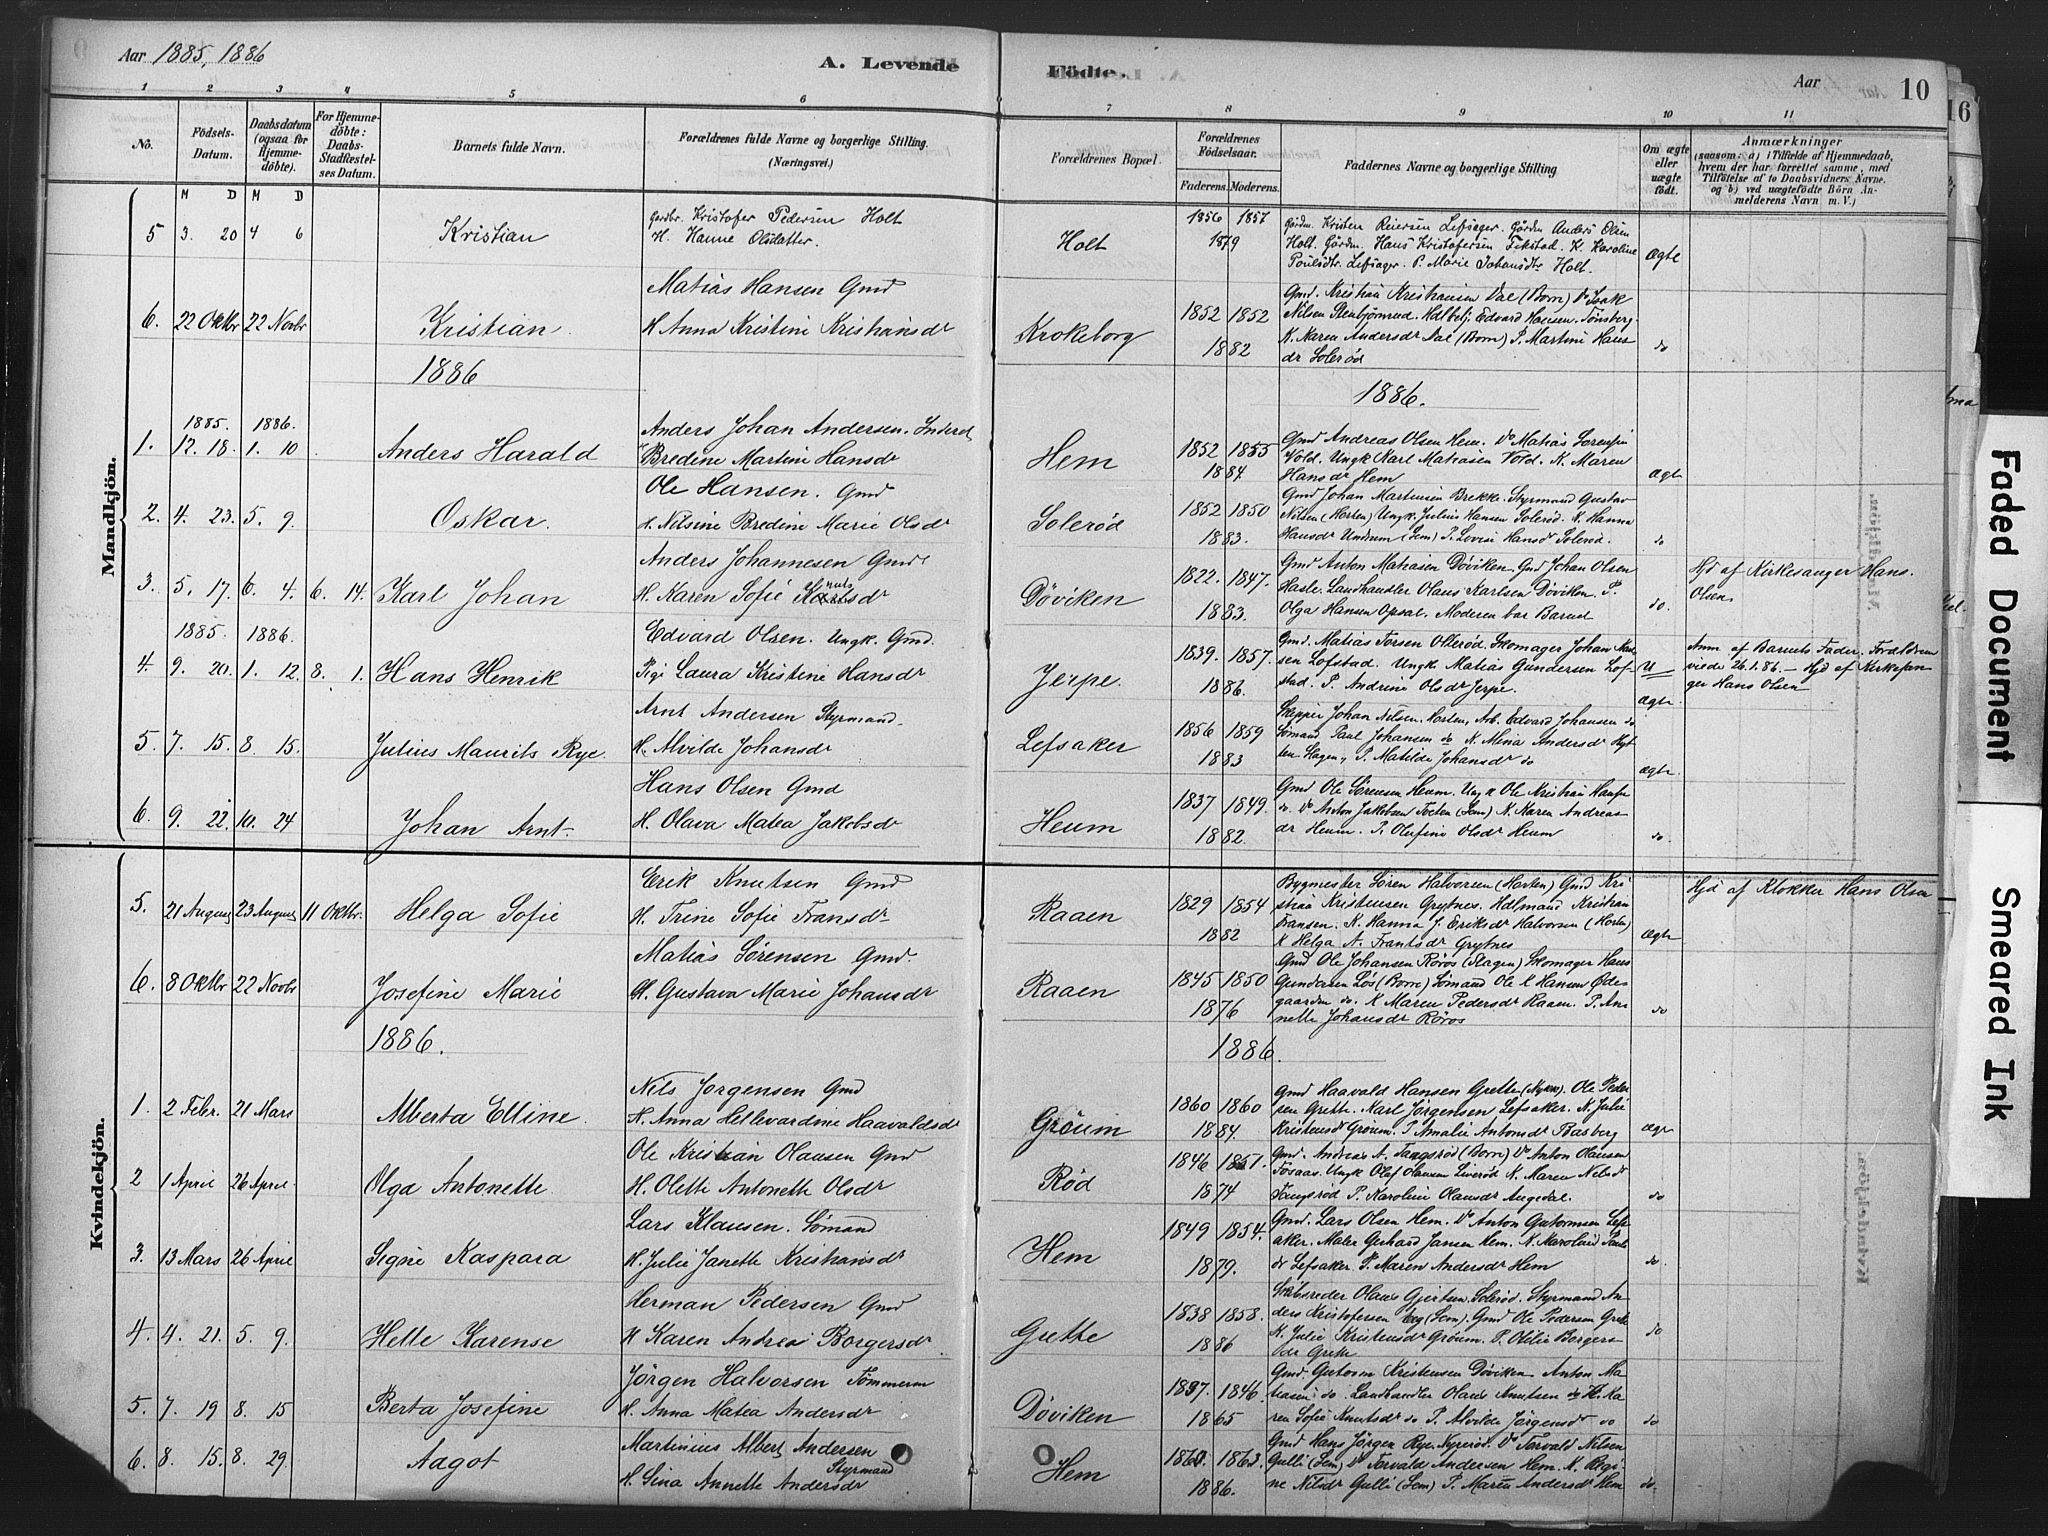 Aar 1885, 1886
A. Levende
Födte.
Aar
10
16
1 2 3 4 5 6 7 8 9 10 11
No.
Födsels-Datum.
Daabsdatum (ogsaa for Hjemme-döbte).
For Hjemme-döbte: Daabs-Stadfæstel-ses Datum.
Barnets fulde Navn.
Forældrenes fulde Navne og borgerlige Stilling.
(Næringsvei.)
Forældrenes Bopæl.
Forældrenes Födselsaar.
Faderens. Moderens.
Faddernes Navne og borgerlige Stilling
Om ægte eller uægte födt.
Anmærkninger
(saasom: a) i Tilfælde af Hjemmedaab, hvem der har forrettet samme, med Tilföielse af to Daabsvidners Navne, og b) ved uægtefödte Börn An-melderens Navn m. V.)
M D M D
Mandkjön.
5 3. 20 4 6 Kristian
Gårdbr. Kristofer Pedersen Holt
H. Hanne Olsdatter.
Holt
1856 1857
1879
Gårdm. Kristen Reiersen Lefsager. Gårdm Anders Olsen
Holt. Gårdm. Hans Kristofersen Fekstad. K. Karoline
Poulsdtr. Lefsager. P. Marie Johansdtr Holt.
Ægte
6. 22 Oktbr 22 Novbr Kristian
Matias Hansen Gmd
H Anna Kristine Kristiansdr
Krokeborg
1852 1852
1882
Gmd. Kristian Kristiansen Dal (Borre) Do Isak
Nilsen Stenbjørnrud. Edvard Hansen. Tønsberg.
K. Karen Andersdr Dal (Borre) P. Martine Hans
dr Solerød
do
1886
1886.
1885. 1886.
1. 12. 18. 1. 10 Anders Harald
Anders Johan Andersen. Inderst
H Bredine Martine Hansdr
Hem
1852 1855
1884
Gmd Andreas Olsen Hem. Do Matias Sørensen
Vold. Ungk Karl Matiasen Vold. K. Maren
Hansdr Hem
ægte
2. 4. 23. 5. 9. Oskar.
Ole Hansen. Gmd
H. Nilsine Bredine Marie Olsdr
Solerød
1852 1850
1883.
Gmd Johan Martinsen Brekke. Styrmand Gustav
Nilsen (Horten) Ungk. Julius Hansen Solerød. K. Hanna
Hansdr Undrum (Sem) P. Lovise Hansdr Solerød.
do
3. 5. 17. 6. 4. 6. 14. Karl Johan
Anders Johannesen Gmd
H. Karen Sofie Knutsdr
Døviken
1822. 1847.
1883.
Gmd Anton Matiasen Døviken. Gmd Johan Olsen
Hasle. Landhandler Olaus Karlsen Døviken. P.
Olga Hansen Opsal. Moderen bar Barnet
do.
Hjd af Kirkesanger Hans.
Olsen
1885. 1886.
4. 9. 20. 1. 12. 8. 1. Hans Henrik
Edvard Olsen. Ungk. Gmd.
Pige Laura Kristine Hansdr
Jerpe.
1839. 1857.
1886.
Gmd. Matias Torsen Ollerød. Skomager Johan Karl
sen Lofstad. Ungk Matias Gundersen Lof-
stad. P. Andrine Olsdr Jerpe.
U
ægte.
Anm af Barnets Fader. Forældrene
viede 26.1.86. — Hjd af Kirkesan
ger Hans Olsen
5. 7. 15. 8. 15. Julius Maurits Rye.
Arnt Andersen Styrmand.
H. Alvilde Johansdr
Lefsaker
1856 1859
1883
Skipper Johan Nilsen. Horten, Arb. Edvard Johansen do
Sömand Paul Johansen do K. Mina Andersdr Hyt
ten. Slagen, P. Matilde Johansdr do
ægte
6. 9. 22. 10. 24 Johan Arnt
Hans Olsen Gmd
H. Olava Matea Jakobsdr
Heum
1837 1849.
1882.
Gmd Ole Sörensen Heum. Ungk Ole Kristian Hansen
do. Do Anton Jakobsen Toeten (Sem) K. Karen Andreas
dr Heum. P. Olufine Olsdr Heum
do.
Kvindekjön.
5. 21 August 23 August 11 Oktbr. Helga Sofie
Erik Knutsen Gmd
H. Trine Sofie Fransdr
Raaen
1829 1854
1882
Bygmester Sören Halvorsen (Horten) Gmd Kri
stian Kristensen Grytnes. Kristian
Fransen. K. Hanna J. Eriksdr Halvorsen (Horten)
K Helga A. Frantsdr Grytnes
ægte
Hjd af Klokker Hans Olsen
6. 8 Oktbr 22 Novbr Josefine Marie
Matias Sørensen Gmd.
H. Gustava Marie Johansdr
Raaen
1845 1850
1876
Gmd Ole Johansen Røros (Slagen) Skomager Hans
Gundersen Løs (Borre) Sömand Ole K Hansen Ødes
gaarden do. K Maren Pedersdr Raaen. P. An
nette Johansdr Røros
do
1886.
1886.
1. 2 Febr. 21 Mars Alberta Elline.
Nils Jørgensen Gmd
H. Anna Hellevardine Haavaldsdr
Grøum
1860 1860
1884.
Gmd Haavald Hansen Grette (Nykirke). Ole Peder
sen Grette. Karl Jørgensen Lefsaker. K. Julie
Kristensdr Grøum. P Amalie Antonsdr Basberg
ægte
2 1 April 26 April. Olga Antonette
Ole Kristian Olausen Gmd
H. Olette Antonette Olsdr
Rød
1846 1851.
1874
Gmd. Andreas A. Fangsrød (Borre) Do Anton Olausen
Fosaas. Ungk Olaf Olausen Liverød K. Maren Nilsdr
Fangsrød P. Karoline Olausdr Augedal.
do
3. 13 Mars 26 April Signe Kaspara
Lars Klausen. Sømand
H. Julie Janette Kristiansdr
Hem
1849 1854.
1879.
Gmd. Lars Olsen Hem. Do Anton Gutormsen Lefs
aker. Maler Gerhard Jansen Hem. K. Karoline Pauls
dr Lefsaker. P. Maren Andersdr Hem
do.
4. 4. 21. 5. 9. Helle Karense
Herman Pedersen Gmd
H Karen Andrea Borgersdr
Grette
1838 1858.
1886
Skibsreder Olaus Gjertsen. Solerød. Styrmand An
ders Kristofersen Eeg (Sem). Gmd Ole Pedersen Grette
K. Julie Kristensdr Grøum. P. Otilie Borgers
dr Grette
do
5. 7. 19 8. 15 Berta Josefine
Jörgen Halvorsen Tömmerm
H. Anna Matea Andersdr
Døviken
1837. 1846.
1865
Gmd. Gutorm Kristensen Døviken Anton Ma
tiasen do. Landhandler Olaus Knutsen do K. Ka
ren Sofie Knutsdr do P. Alvilde Jørgensdr do
do
6. 8. 15. 8. 29 Aagot
Martinius Albert Andersen
Styrmand
H. Lina Annette Andersdr
Hem
1860. 1863.
1886.
Gmd Hans Jörgen Rye. Nyrerød. Do Torvald Nilsen
Gulli (Sem) Do Torvald Andersen Hem. K. Regi
ne Nilsdr Gulli (Sem) P. Maren Andersdr Hem
do.
Faded Document
Smeared Ink